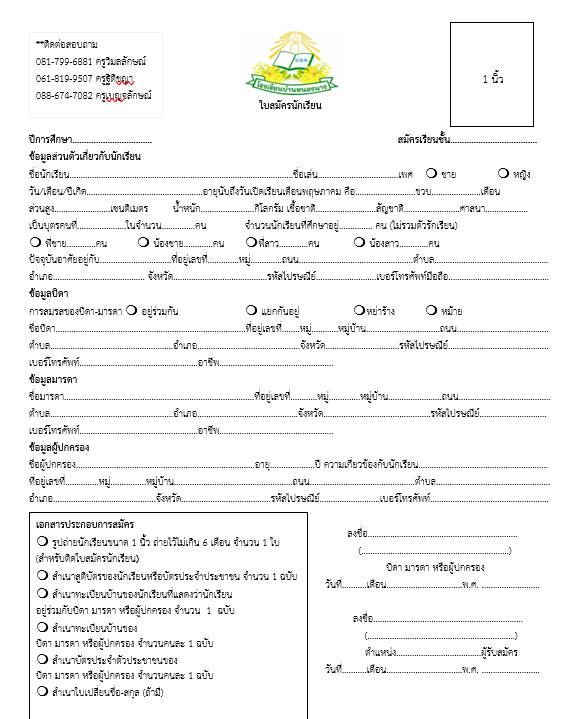 **ติดต่อสอบถาม
081-799-6881 ครูวิมลลักษณ์
061-819-9507 ครูฐิติชญา
088-674-7082 ครูเบญจลักษณ์
โรงเรียนบ้านหนองนาง
ใบสมัครนักเรียน
1 นิ้ว
ปีการศึกษา.............................. สมัครเรียนชั้น..............................
ข้อมูลส่วนตัวเกี่ยวกับนักเรียน
ชื่อนักเรียน..............................ชื่อเล่น..............................เพศ ชาย หญิง
วัน/เดือน/ปีเกิด..............................อายุนับถึงวันเปิดเรียนเดือนพฤษภาคม คือ....................ขวบ....................เดือน
ส่วนสูง....................เซนติเมตร น้ำหนัก....................กิโลกรัม เชื้อชาติ....................สัญชาติ....................ศาสนา...............
เป็นบุตรคนที่....................ในจำนวน...............คน จำนวนนักเรียนที่ศึกษาอยู่............... คน (ไม่รวมตัวรักเรียน)
พี่ชาย..........คน น้องชาย..........คน พี่สาว..........คน น้องสาว..........คน
ปัจจุบันอาศัยอยู่กับ..............................ที่อยู่เลขที่...............หมู่..........ถนน..............................ตำบล..............................
อำเภอ.............................. จังหวัด..............................รหัสไปรษณีย์....................เบอร์โทรศัพท์มือถือ..............................
ข้อมูลบิดา
การสมรสของบิดา-มารดา อยู่ร่วมกัน แยกกันอยู่ หย่าร้าง หม้าย
ชื่อบิดา..............................ที่อยู่เลขที่..........หมู่..........หมู่บ้าน....................ถนน..............................
ตำบล..............................อำเภอ..............................จังหวัด....................รหัสไปรษณีย์..............................
เบอร์โทรศัพท์..............................อาชีพ..............................
ข้อมูลมารดา
ชื่อมารดา..............................ที่อยู่เลขที่..........หมู่..........หมู่บ้าน....................ถนน..............................
ตำบล..............................อำเภอ..............................จังหวัด..............................รหัสไปรษณีย์....................
เบอร์โทรศัพท์..............................อาชีพ..............................
ข้อมูลผู้ปกครอง
ชื่อผู้ปกครอง..............................อายุ...............ปี ความเกี่ยวข้องกับนักเรียน..............................
ที่อยู่เลขที่...............หมู่...............หมู่บ้าน..............................ถนน..............................ตำบล..............................
อำเภอ..............................จังหวัด..............................รหัสไปรษณีย์....................เบอร์โทรศัพท์..............................
เอกสารประกอบการสมัคร
รูปถ่ายนักเรียนขนาด 1 นิ้ว ถ่ายไว้ไม่เกิน 6 เดือน จำนวน 1 ใบ
(สำหรับติดใบสมัครนักเรียน)
สำเนาสูติบัตรของนักเรียนหรือบัตรประจำประชาชน จำนวน 1 ฉบับ
สำเนาทะเบียนบ้านของนักเรียนที่แสดงว่านักเรียน
อยู่ร่วมกับบิดา มารดา หรือผู้ปกครอง จำนวน 1 ฉบับ
สำเนาทะเบียนบ้านของ
บิดา มารดา หรือผู้ปกครอง จำนวนคนละ 1 ฉบับ
สำเนาบัตรประจำตัวประชาชนของ
บิดา มารดา หรือผู้ปกครอง จำนวนคนละ 1 ฉบับ
สำเนาใบเปลี่ยนชื่อ-สกุล (ถ้ามี)
ลงชื่อ..............................
(..............................)
บิดา มารดา หรือผู้ปกครอง
วันที่..........เดือน....................พ.ศ. ...............
ลงชื่อ..............................
(..............................)
ตำแหน่ง..............................ผู้รับสมัคร
วันที่..........เดือน....................พ.ศ. ...............